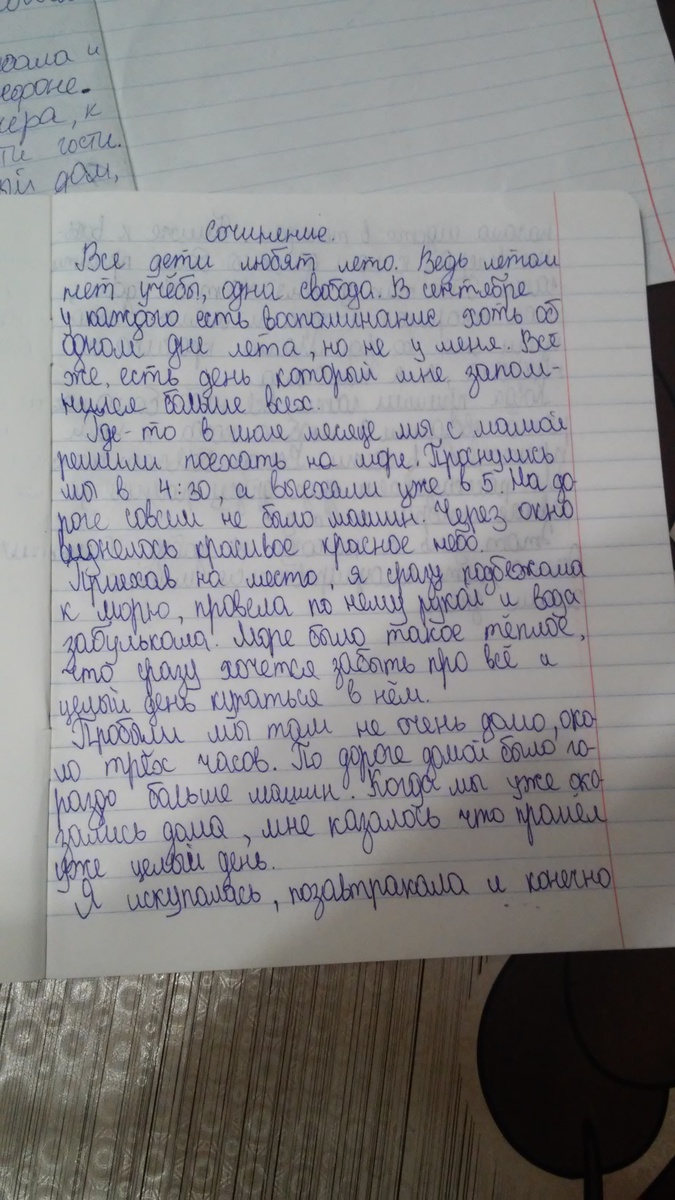 звала и
ефоне.
чера, к
ти гости.
ый дом,
Сочинение.
Все дети любят лето. Ведь летом
нет учёбы, одна свобода. В сентябре
у каждого есть воспоминание хоть об
одном дне лета, но не у меня. Всё
же, есть день который мне запом-
нился больше всех.
Где-то в июле месяце мы с мамой
решили поехать на море. Проснулись
мы в 4:30, а выехали уже в 5. На до-
роге совсем не было машин. Через окно
виднелось красивое красное небо.
Приехав на место я сразу подбежала
к морю, провела по нему рукой и вода
забулькала. Море было такое тёплое,
что сразу хочется забыть про всё и
целый день купаться в нём.
Пробыли мы там не очень долго, око-
ло трёх часов. По дороге домой было го-
раздо больше машин. Когда мы уже ока-
зались дома, мне казалось что прошёл
уже целый день.
Я искупалась, позавтракала и конечно